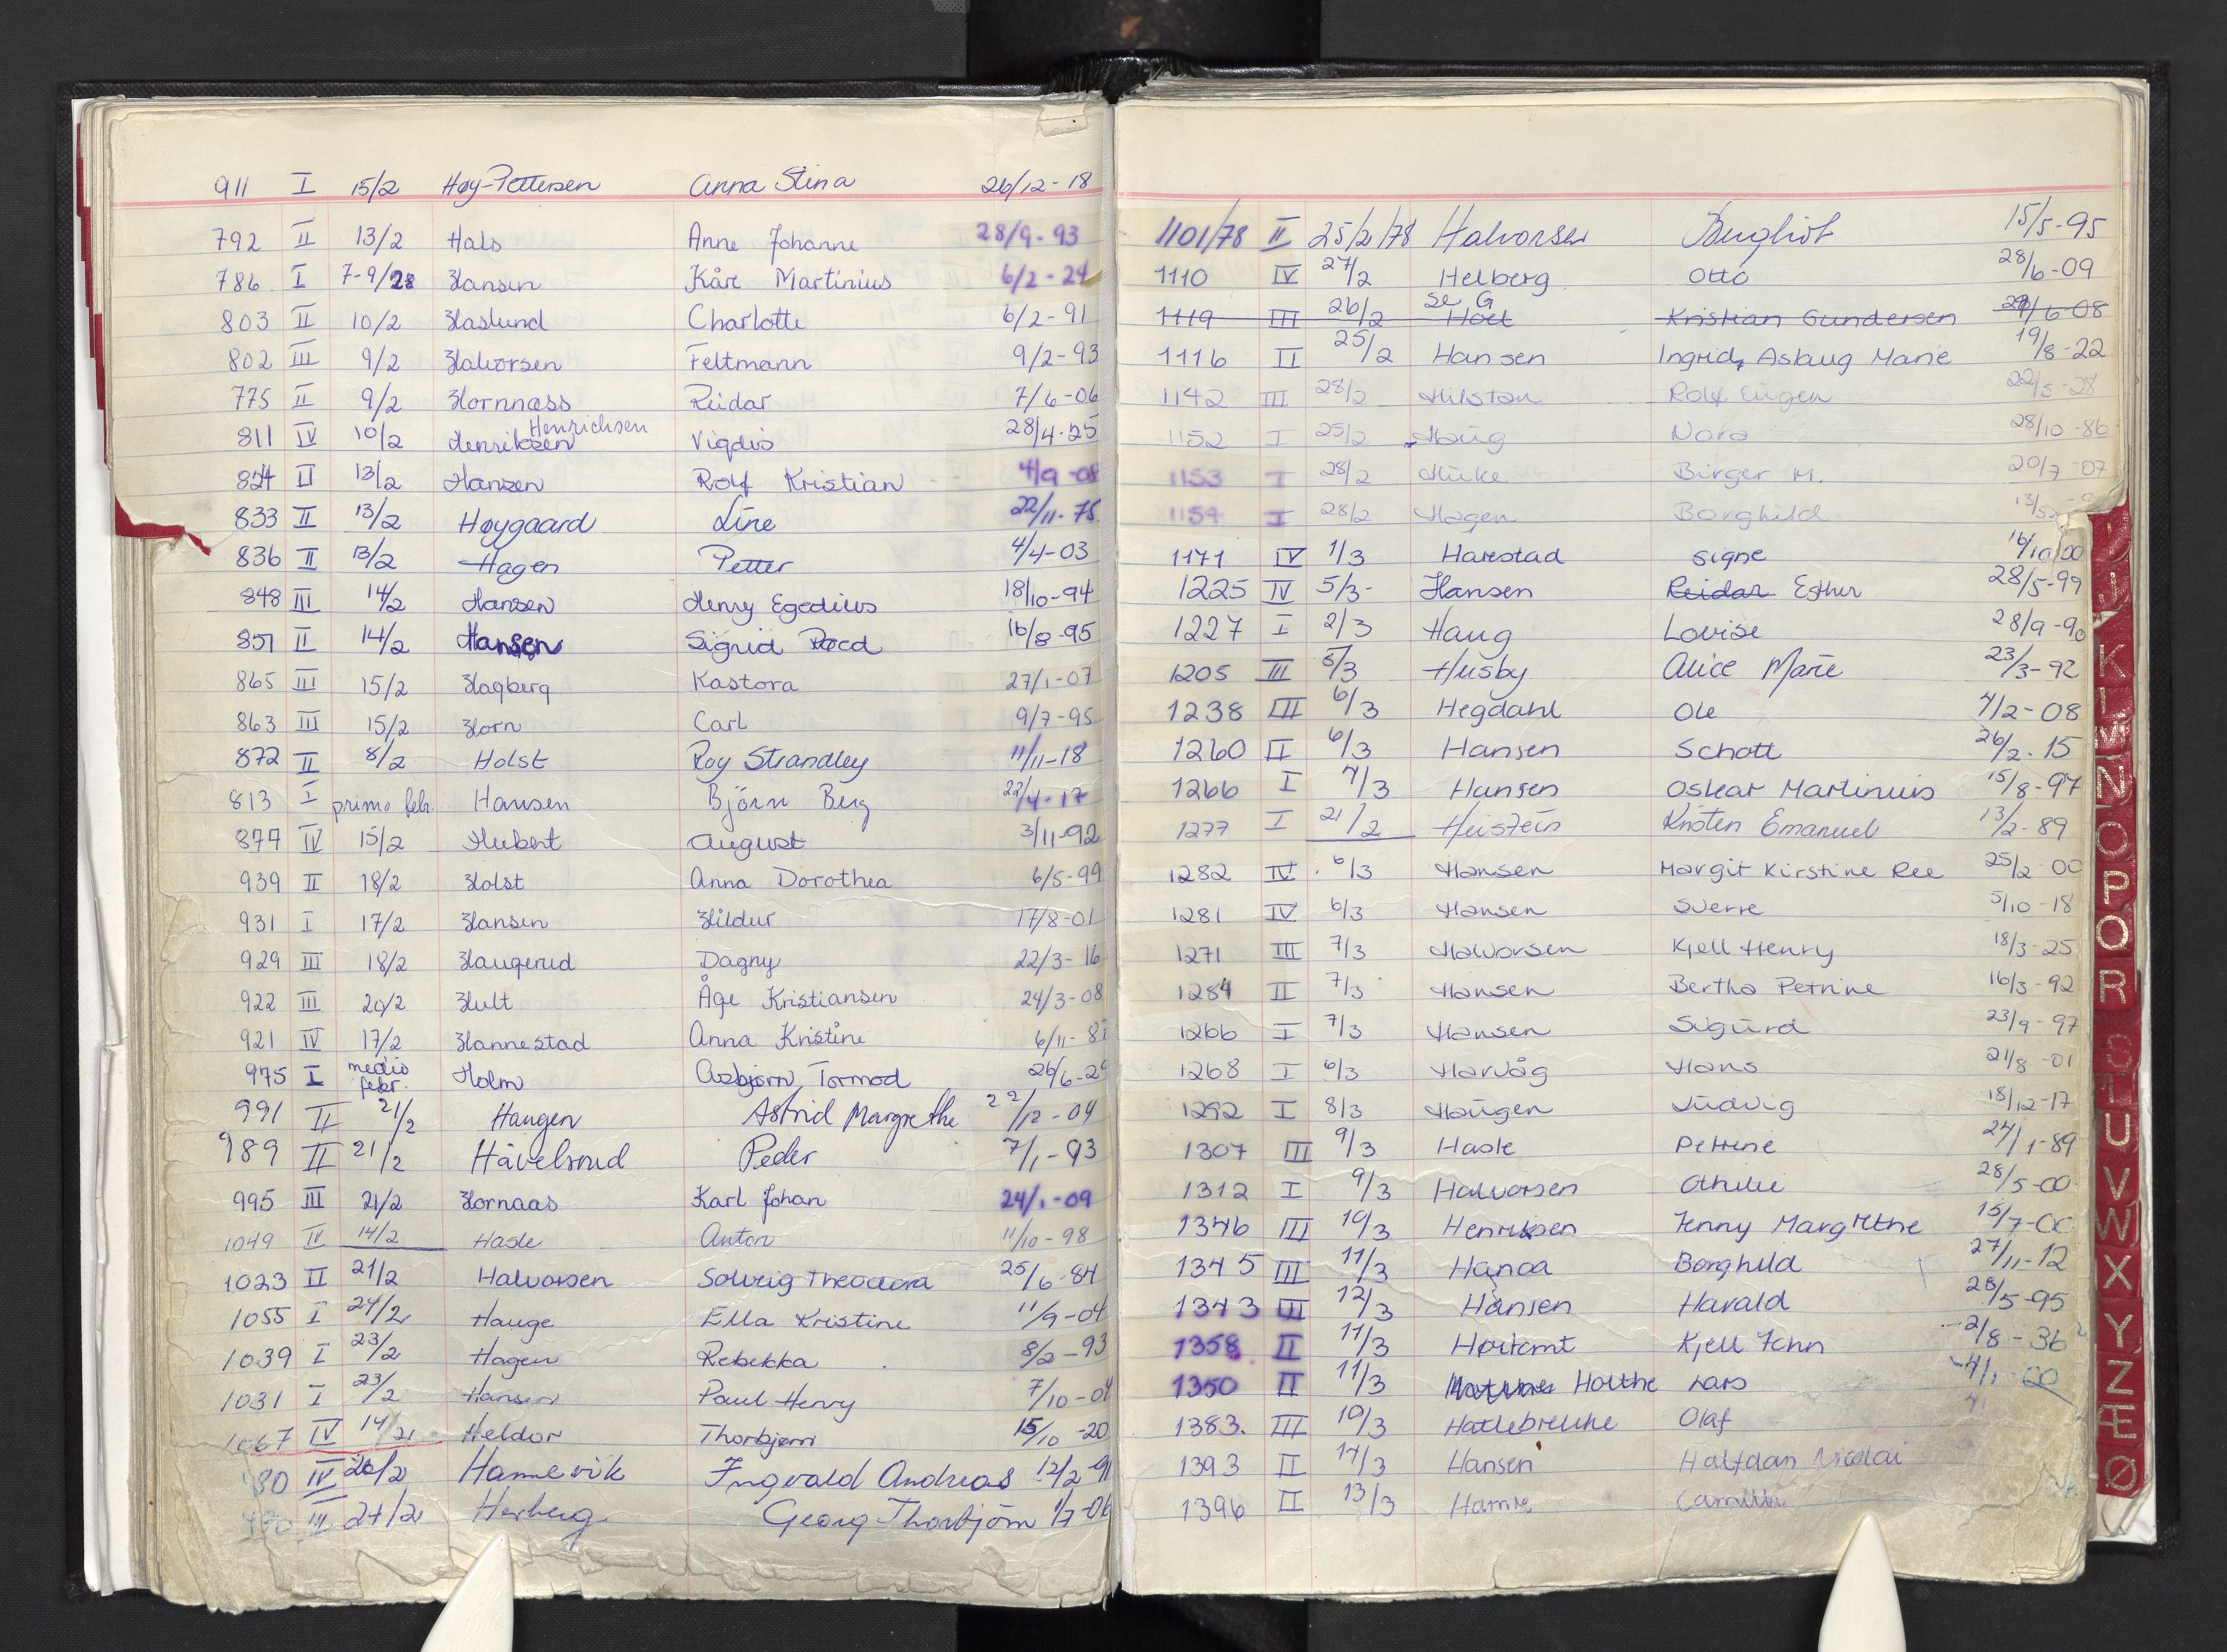 911 I 15/2 Høy-Pettersen Anna Stina 26/12-18
792 II 13/2 Hals Anne Johanne 28/9-93
786 I 7-9/28 Hansen Kåre Martinius 6/2-24
803 II 10/2 Haslund Charlotte 6/2-91
802 III 9/2 Halvorsen Feltmann 9/2-93
775 II 9/2 Hornnæss Reidar 7/6-06
Henrichsen
811 IV 10/2 Henriksen Vigdis 28/4-25
824 II 13/2 Hansen Rolf Kristian 4/9-08
833 II 13/2 Høygaard Line 22/11-75
836 II 13/2 Hagen Petter 4/4-03
848 III 14/2 Hansen Henry Egedius 18/10-94
851 II 14/2 Hansen Sigrid 16/8-95
865 III 15/2 Hagberg Kastora 27/1-07
863 III 15/2 Horn Carl 9/7-95
872 II 8/2 Holst Roy Strandley 11/11-18
813 I primo febr. Hansen Björn Berg 22/4-17
877 IV 15/2 Hubert August 3/11-92
939 II 18/2 Holst Anna Dorothea 6/5-99
931 I 17/2 Hansen Hildur 17/8-01
929 III 18/2 Haugerud Dagny 22/3-16
922 III 20/2 Hult Åge Kristiansen 24/3-08
921 IV 17/2 Hannestad Anna Kristine 6/11-
975 I medio febr. Holm Asbjørn, Tormod 26/6-29
991 II 21/2 Haugen Astrid Margrethe 22/12-04
989 II 21/2 Håvelsrud Peder 7/1-93
995 III 21/2 Hornaas Karl Johan 24/1-09
1049 IV 14/2 Hasle Anton 11/10-98
1023 II 21/2 Halvorsen Solveig Theodora 25/6-84
1055 I 24/2 Hauge Ella Kristine 11/9-04
1039 I 23/2 Hagen Rebekka 8/2-93
1031 I 23/2 Hansen Paul Henry 7/10-04
1067 IV 14/2 Heldor Thorbjørn 15/10-20
80 IV 26/2 Hamnevik Ingvald Andreas 12/2-91
III 24/2 Herberg Georg Thorbjörn 1/7-06
1101/78 II 25/2/78 Halvorsen Bergliot 15/5-95
1110 IV 27/2 Helberg Otto 28/6-09
se G
1119 III 26/2 Hoel Kristian Gundersen 29/6-08
1116 II 25/2 Hansen Ingrid, Aslaug Marie 19/8-22
1142 III 28/2 Hilstan Rolf Eugen 22/5-28
1152 I 25/2 Haug Nora 28/10-86
1153 I 28/2 Huke Birger M. 20/7-07
1154 I 28/2 Hagen Borghild 13/5
1171 IV 1/3 Harestad Signe 16/10 00
1225 IV 5/3- Hansen Reidar Esther 28/5-99
1227 I 2/3 Haug Lovise 28/9-90
1205 III 5/3 Husby Alice Marie 23/3-92
1238 III 6/3 Hegdahl Ole 4/2-08
1260 II 6/3 Hansen Schott 26/2-15
1266 I 7/3 Hansen Oskar Martinius 15/8-97
1277 I 21/2 Heistein Kristen Emanuel 13/2-89
1282 IV 6/3 Hansen Margit Kirstine Ree 25/2-00
1281 IV 6/3 Hansen Sverre 5/10-18
1271 III 7/3 Halvorsen Kjell Henry 18/3-25
1284 II 7/3 Hansen Bertha Petrine 16/3-92
1266 I 7/3 Hansen Sigurd 23/9-97
1268 I 6/3 Harvåg Hans 21/8-01
1292 I 8/3 Haugen Ludvig 18/12-17
1307 III 9/3 Hasle Petrine 27/1-89
1312 I 9/3 Halvorsen Othilie 28/5-00
1346 III 10/3 Henriksen Jenny Margrethe 15/7-00
1345 III 11/3 Hanoa Borghild 27/11-12
1343 III 12/3 Hansen Harald 28/5-95
1358 II 11/3 Høitomt Kjell John 2/8-36
1350 II 11/3 Holthe Lars 4/1-00
1383. III 10/3 Hatlebrekke Olaf
1393 II 14/3 Hansen Halfdan Nicolai
1396 II 13/3 Hamre Camilla
J
K
L
M
N
O
P
Q
R
S
T
U
V
W
X
Y
Z
Æ
Ø